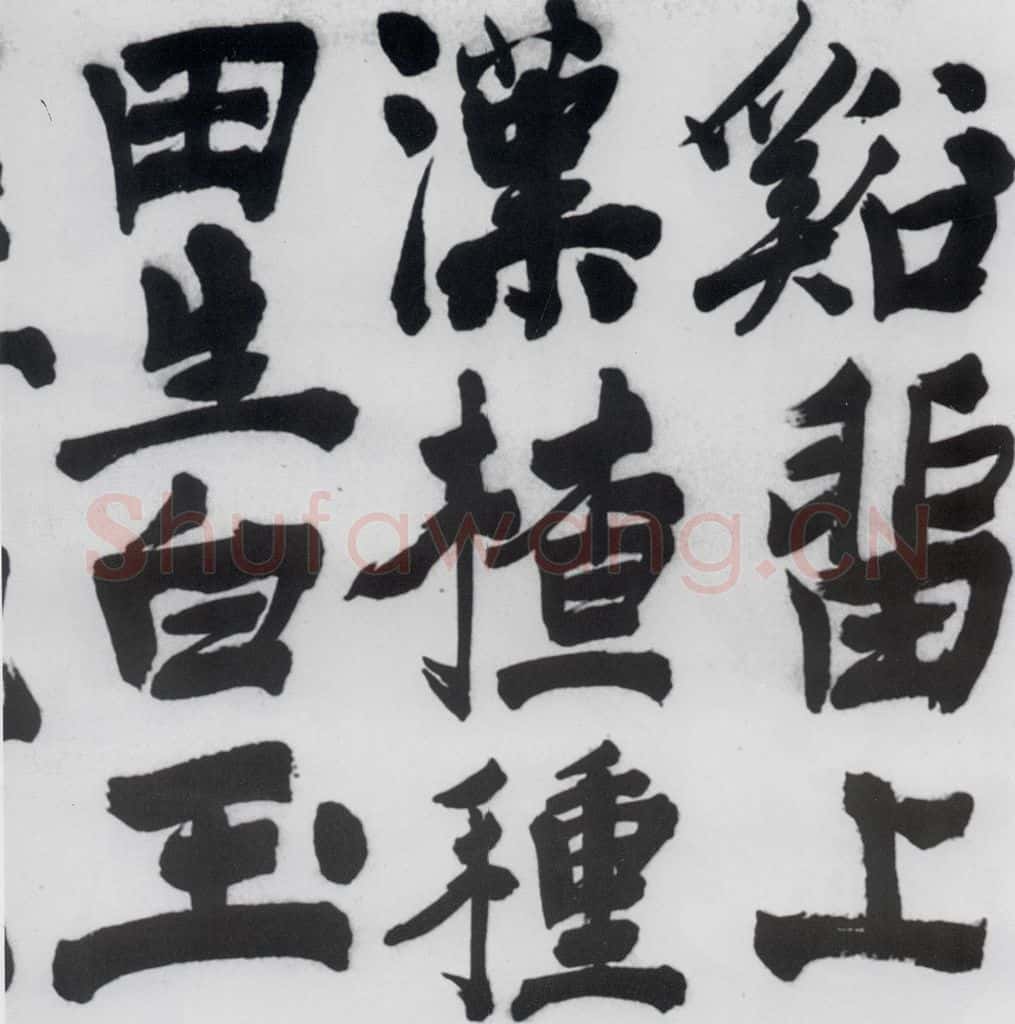 谿畱上
漢楂種
田生白玉
Shufawang.CN